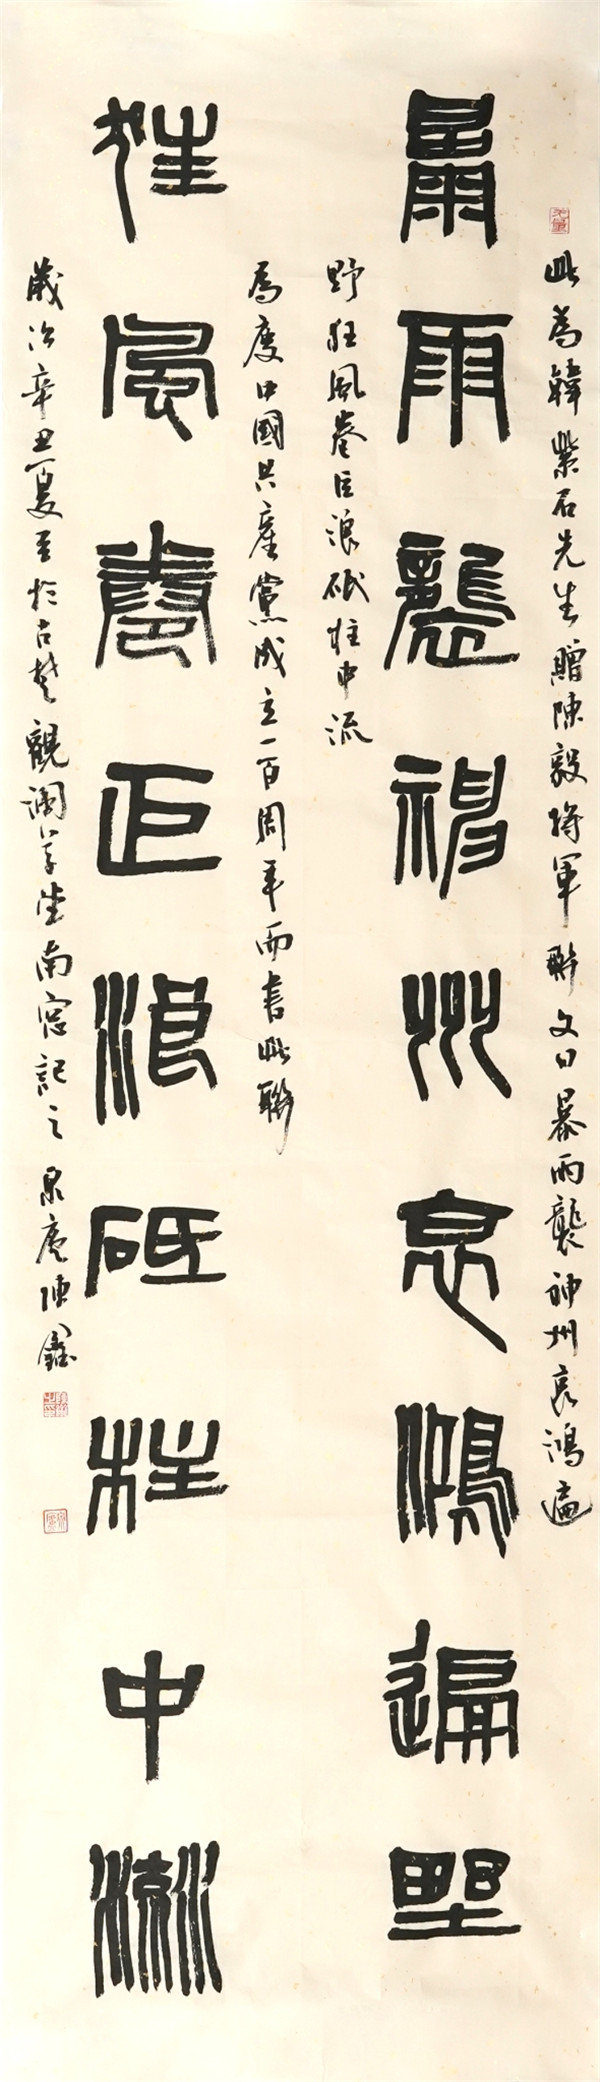 暴雨襲神州哀鴻遍野
狂風卷巨浪砥柱中流
此為韓紫石先生贈陳毅將軍聯文曰暴雨襲神州哀鴻遍
野狂風卷巨浪砥柱中流
為慶中國共產黨成立一百周年而書此聯
歲次辛丑夏至於古楚觀瀾草堂南窓記之泉庵陳鑫